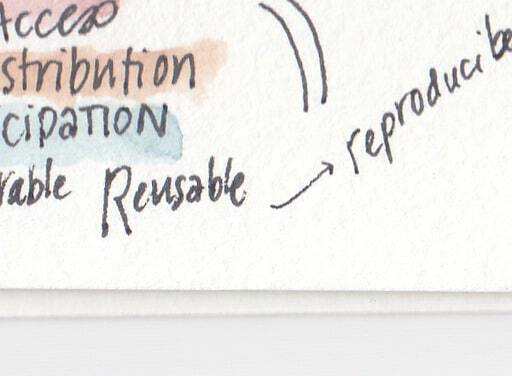 Access
stribution
cipation
rable Reusable → reproducibe